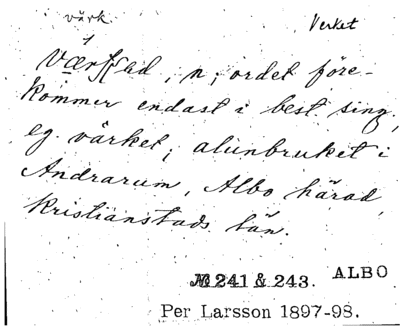 värk
Verket
värkad, n; ordet före-
kommer endast i best. sing.,
eg. värket; alunbruket i
Andrarum, Albo härad,
Kristianstads län.
M 241 & 243. ALBO
Per Larsson 1897-98.